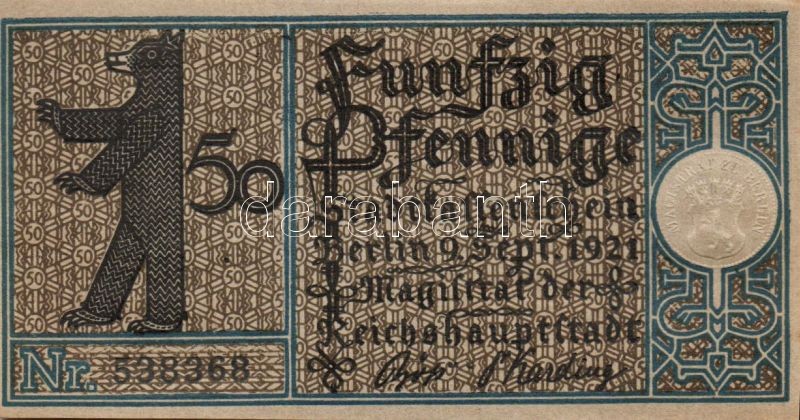 50
Funfzig
Pfennige
Berlin 9. Sept. 1921
Magistrat der
Reichshauptstadt
Nr. 538368
darabanth